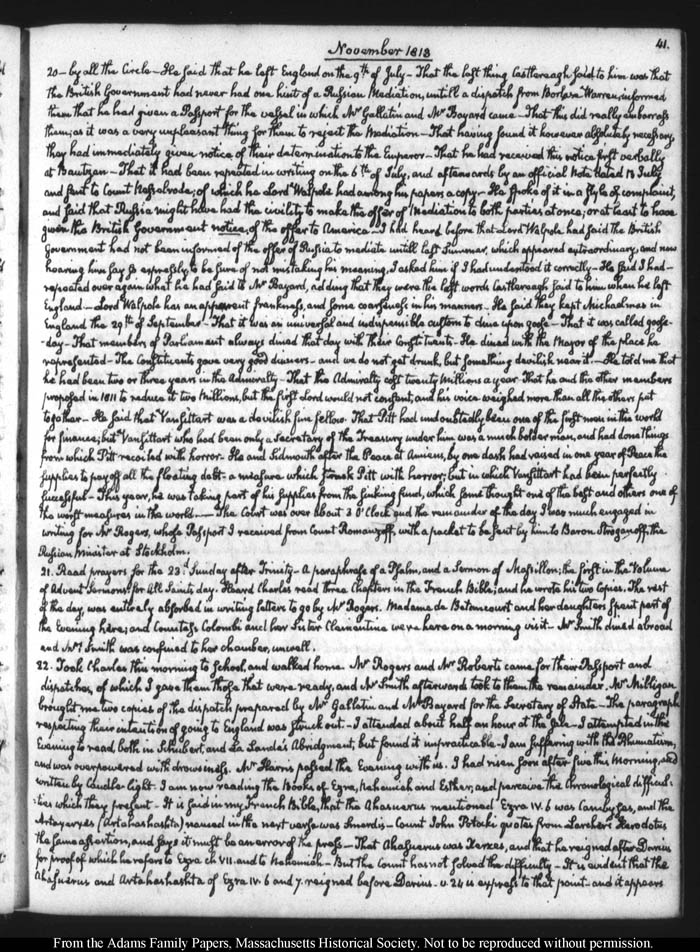 41.
November 1813
20 – by all the Circle – He said that he left England on the 9th of July – That the last thing Castlereagh said to him was that
the British Government had never had one hint of a Russian Mediation, untill a dispatch from Borlase Warren, informed
them that he had given a Passport for the vessel in which Mr Gallatin and Mr Bayard came – That this did really embarrass
them; as it was a very unpleasant thing for them to reject the Mediation – That having found it however absolutely necessary,
they had immediately given notice of their determination to the Emperor – That he had received this notice first verbally
at Bautzen – That it had been repeated in writing on the 6th of July, and afterwards by an official Note dated 13 July
and sent to Count Nesselrode; of which he Lord Walpole had among his papers a copy – He spoke of it in a style of complaint,
and said that Russia might have had the civility to make the offer of Mediation to both parties at once; or at least to have
given the British Government notice, of the offer to America. I had heard before that Lord Walpole had said the British
Government had not been informed of the offer of Russia to mediate untill last Summer, which appeared extraordinary, and now
hearing him say so expressly, to be sure of not mistaking his meaning, I asked him if I had understood it correctly – He said I had –
repeated over again what he had said to Mr Bayard, adding that they were the last words Castlereagh said to him when he left
England – Lord Walpole has an apparent frankness, and some coarseness in his manners – He said they kept Michaelmas in
England the 29th of September – That it was an universal and indispensible custom to dine upon goose – That it was called goose-
day – That members of Parliament always dined that day with their Constituents – He dined with the Mayor of the place he
represented – The Constituents gave very good dinners – and we do not get drunk, but something devilish near it – He told me that
he had been two or three years in the Admiralty – That the Admiralty cost twenty Millions a year – That he and the other members
proposed in 1811 to reduce it two Millions, but the first Lord would not consent, and his voice weighed more than all the others put
together – He said that Vansittart was a devilish fine fellow – That Pitt had undoubtedly been one of the first men in the world
for finance; but Vansittart who had been only a Secretary of the Treasury under him was a much bolder man, and had done things
from which Pitt recoiled with horror – He and Sidmouth after the Peace of Amiens, by one dash had raised in one year of Peace the
supplies to pay off all the floating debt – a measure which struck Pitt with horror; but in which Vansittart had been perfectly
successful – This year, he was taking part of his supplies from the sinking fund, which some thought one of the best and others one of
the worst measures in the world. – The Court was over about 3 O'Clock and the remainder of the day I was much engaged in
writing for Mr Rogers, whose Passport I received from Count Romanzoff, with a packet to be sent by him to Baron Stroganoff, the
Russian Minister at Stockholm.
21. Read prayers for the 23d Sunday after Trinity – A paraphrase of a Psalm, and a Sermon of Massillon; the first in the Volume
of Advent Sermons for All Saints day. Heard Charles read three Chapters in the French Bible; and he wrote his two Copies. The rest
of the day was entirely absorbed in writing letters to go by Mr Rogers. Madame de Betancourt and her daughters spent part of
the Evening here; and Countess Colombi and her Sister Clementina were here on a morning visit – Mr Smith dined abroad
and Mrs Smith was confined to her chamber, unwell.
22. Took Charles this morning to School, and walked home. Mr Rogers and Mr Roberts came for their Passport and
dispatches, of which I gave them those that were ready, and Mr Smith afterwards took to them the remainder. Mr Milligan
brought me two copies of the dispatch prepared by Mr Gallatin and Mr Bayard for the Secretary of State – The paragraph
respecting their intention of going to England was struck out – I attended about half an hour at the Sale – I attempted in the
Evening to read, both in Schubert, and La Lande's Abridgment, but found it unpracticable – I am suffering with the Rheumatism,
and was overpowered with drowsiness. Mr Harris passed the Evening with us. I had risen soon after five this Morning, and
written by Candle-light. I am now reading the Books of Ezra, Nehemiah and Esther; and perceive the Chronological difficul-
ties which they present – It is said in my French Bible, that the Ahasuerus mentioned Ezra IV. 6 was Cambyses, and the
Artaxerxes (Artahashashta) named in the next verse was Smerdis – Count John Potocki quotes from Larcher's Herodotus
the same assertion, and says it must be an error of the press – That Ahasuerus was Xerxes, and that he reigned after Darius
for proof of which he refers to Ezra ch VII. and to Nehemiah – But the Count has not solved the difficulty – It is evident that the
Ahasuerus and Artahashashta of Ezra IV. 6 and 7. reigned before Darius. v. 24 is express to that point – and it appears
From the Adams Family Papers, Massachusetts Historical Society. Not to be reproduced without permission.